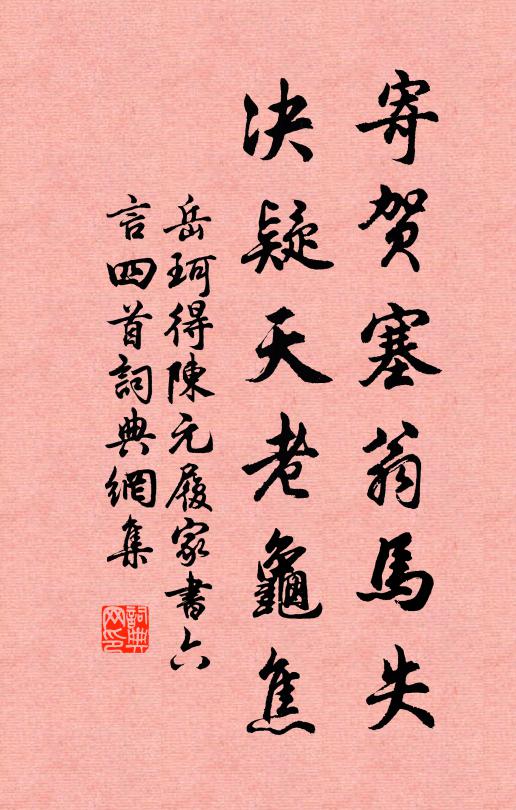 寄賀塞翁馬失
決疑天老龜焦
岳珂得陳元履家書六
言四首詞典網集
詞典網印